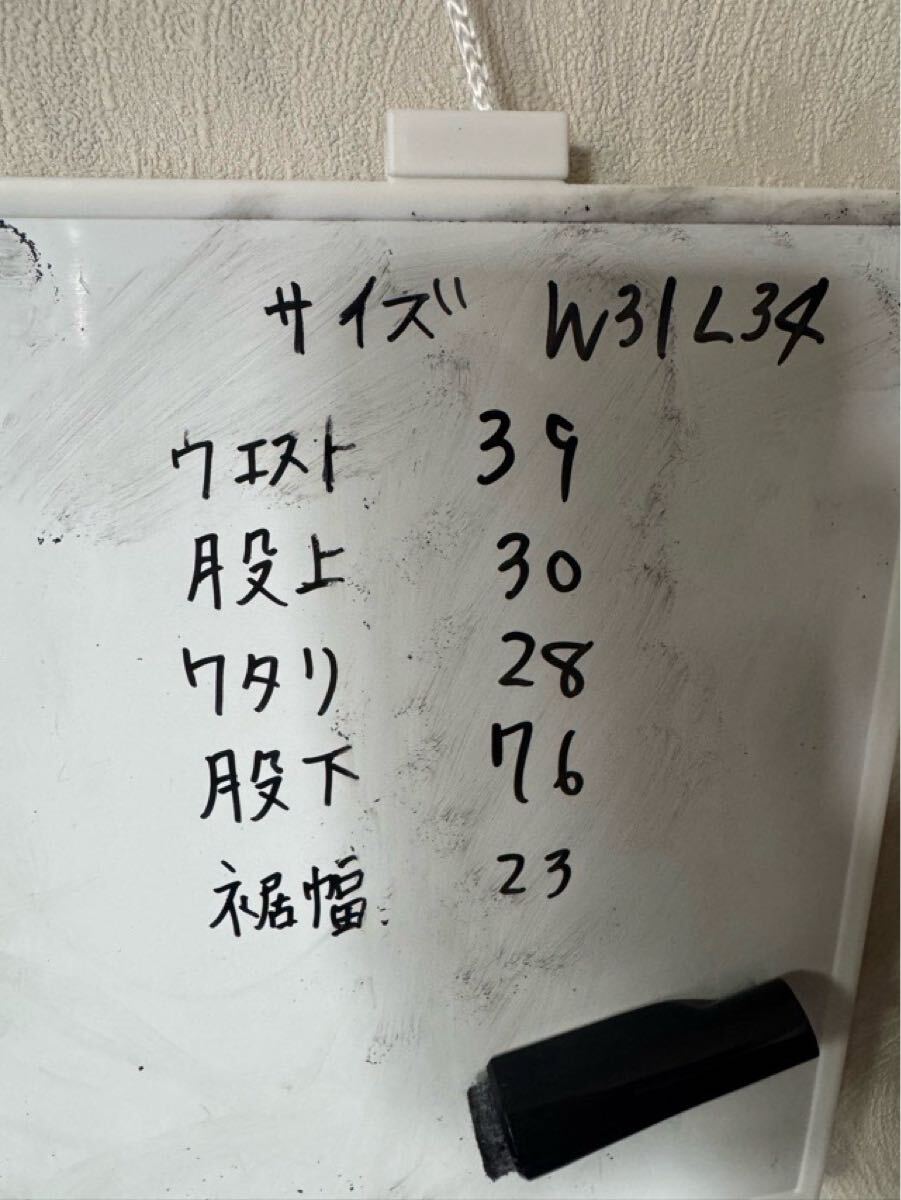 サイズ W31L34
ウエスト 39
股上 30
ワタリ 28
股下 76
裾幅 23